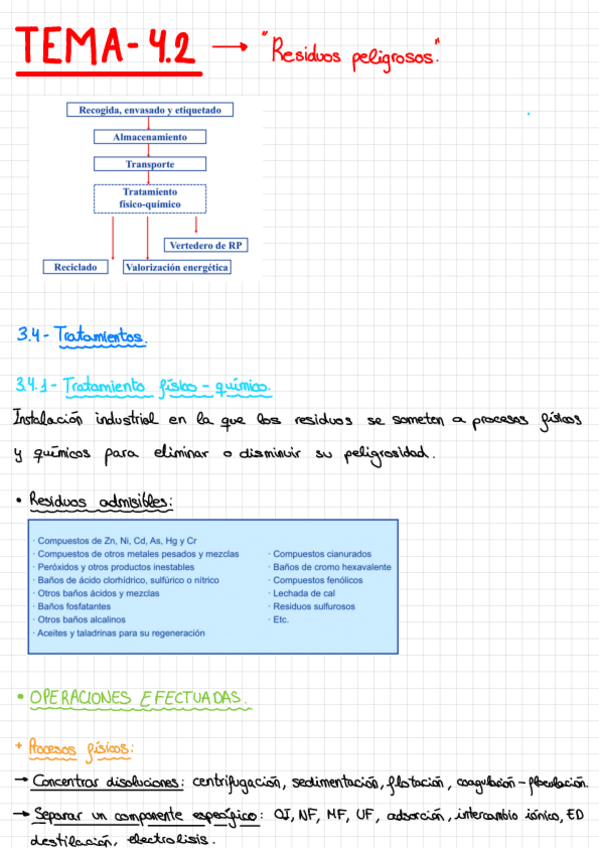 TEMA-4.2 → "Residuos peligrosos".
Recogida, envasado y etiquetado
Almacenamiento
Transporte
Tratamiento
físico-químico
Vertedero de RP
Reciclado
Valorización energética
3.4- Tratamientos.
3.4.1- Tratamiento físico-químico.
Instalación industrial en la que los residuos se someten a procesos físicos
y químicos para eliminar o disminuir su peligrosidad.
• Residuos admisibles:
· Compuestos de Zn, Ni, Cd, As, Hg y Cr
· Compuestos de otros metales pesados y mezclas
· Peróxidos y otros productos inestables
· Baños de ácido clorhídrico, sulfúrico o nítrico
· Otros baños ácidos y mezclas
· Baños fosfatantes
· Otros baños alcalinos
· Aceites y taladrinas para su regeneración
· Compuestos cianurados
· Baños de cromo hexavalente
· Compuestos fenólicos
· Lechada de cal
· Residuos sulfurosos
· Etc.
• OPERACIONES EFECTUADAS.
+ Procesos físicos:
→ Concentrar disoluciones: centrifugación, sedimentación, flotación, coagulación-floculación.
→ Separar un componente específico: OI, NF, MF, UF, adsorción, intercambio iónico, ED
destilación, electrolisis.